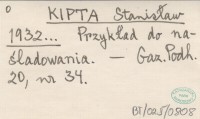 0
KIPTA Stanisław
1932... Przykład do na-
śladowania. — Gaz. Podh.
20, nr 34.
BI/025/0508